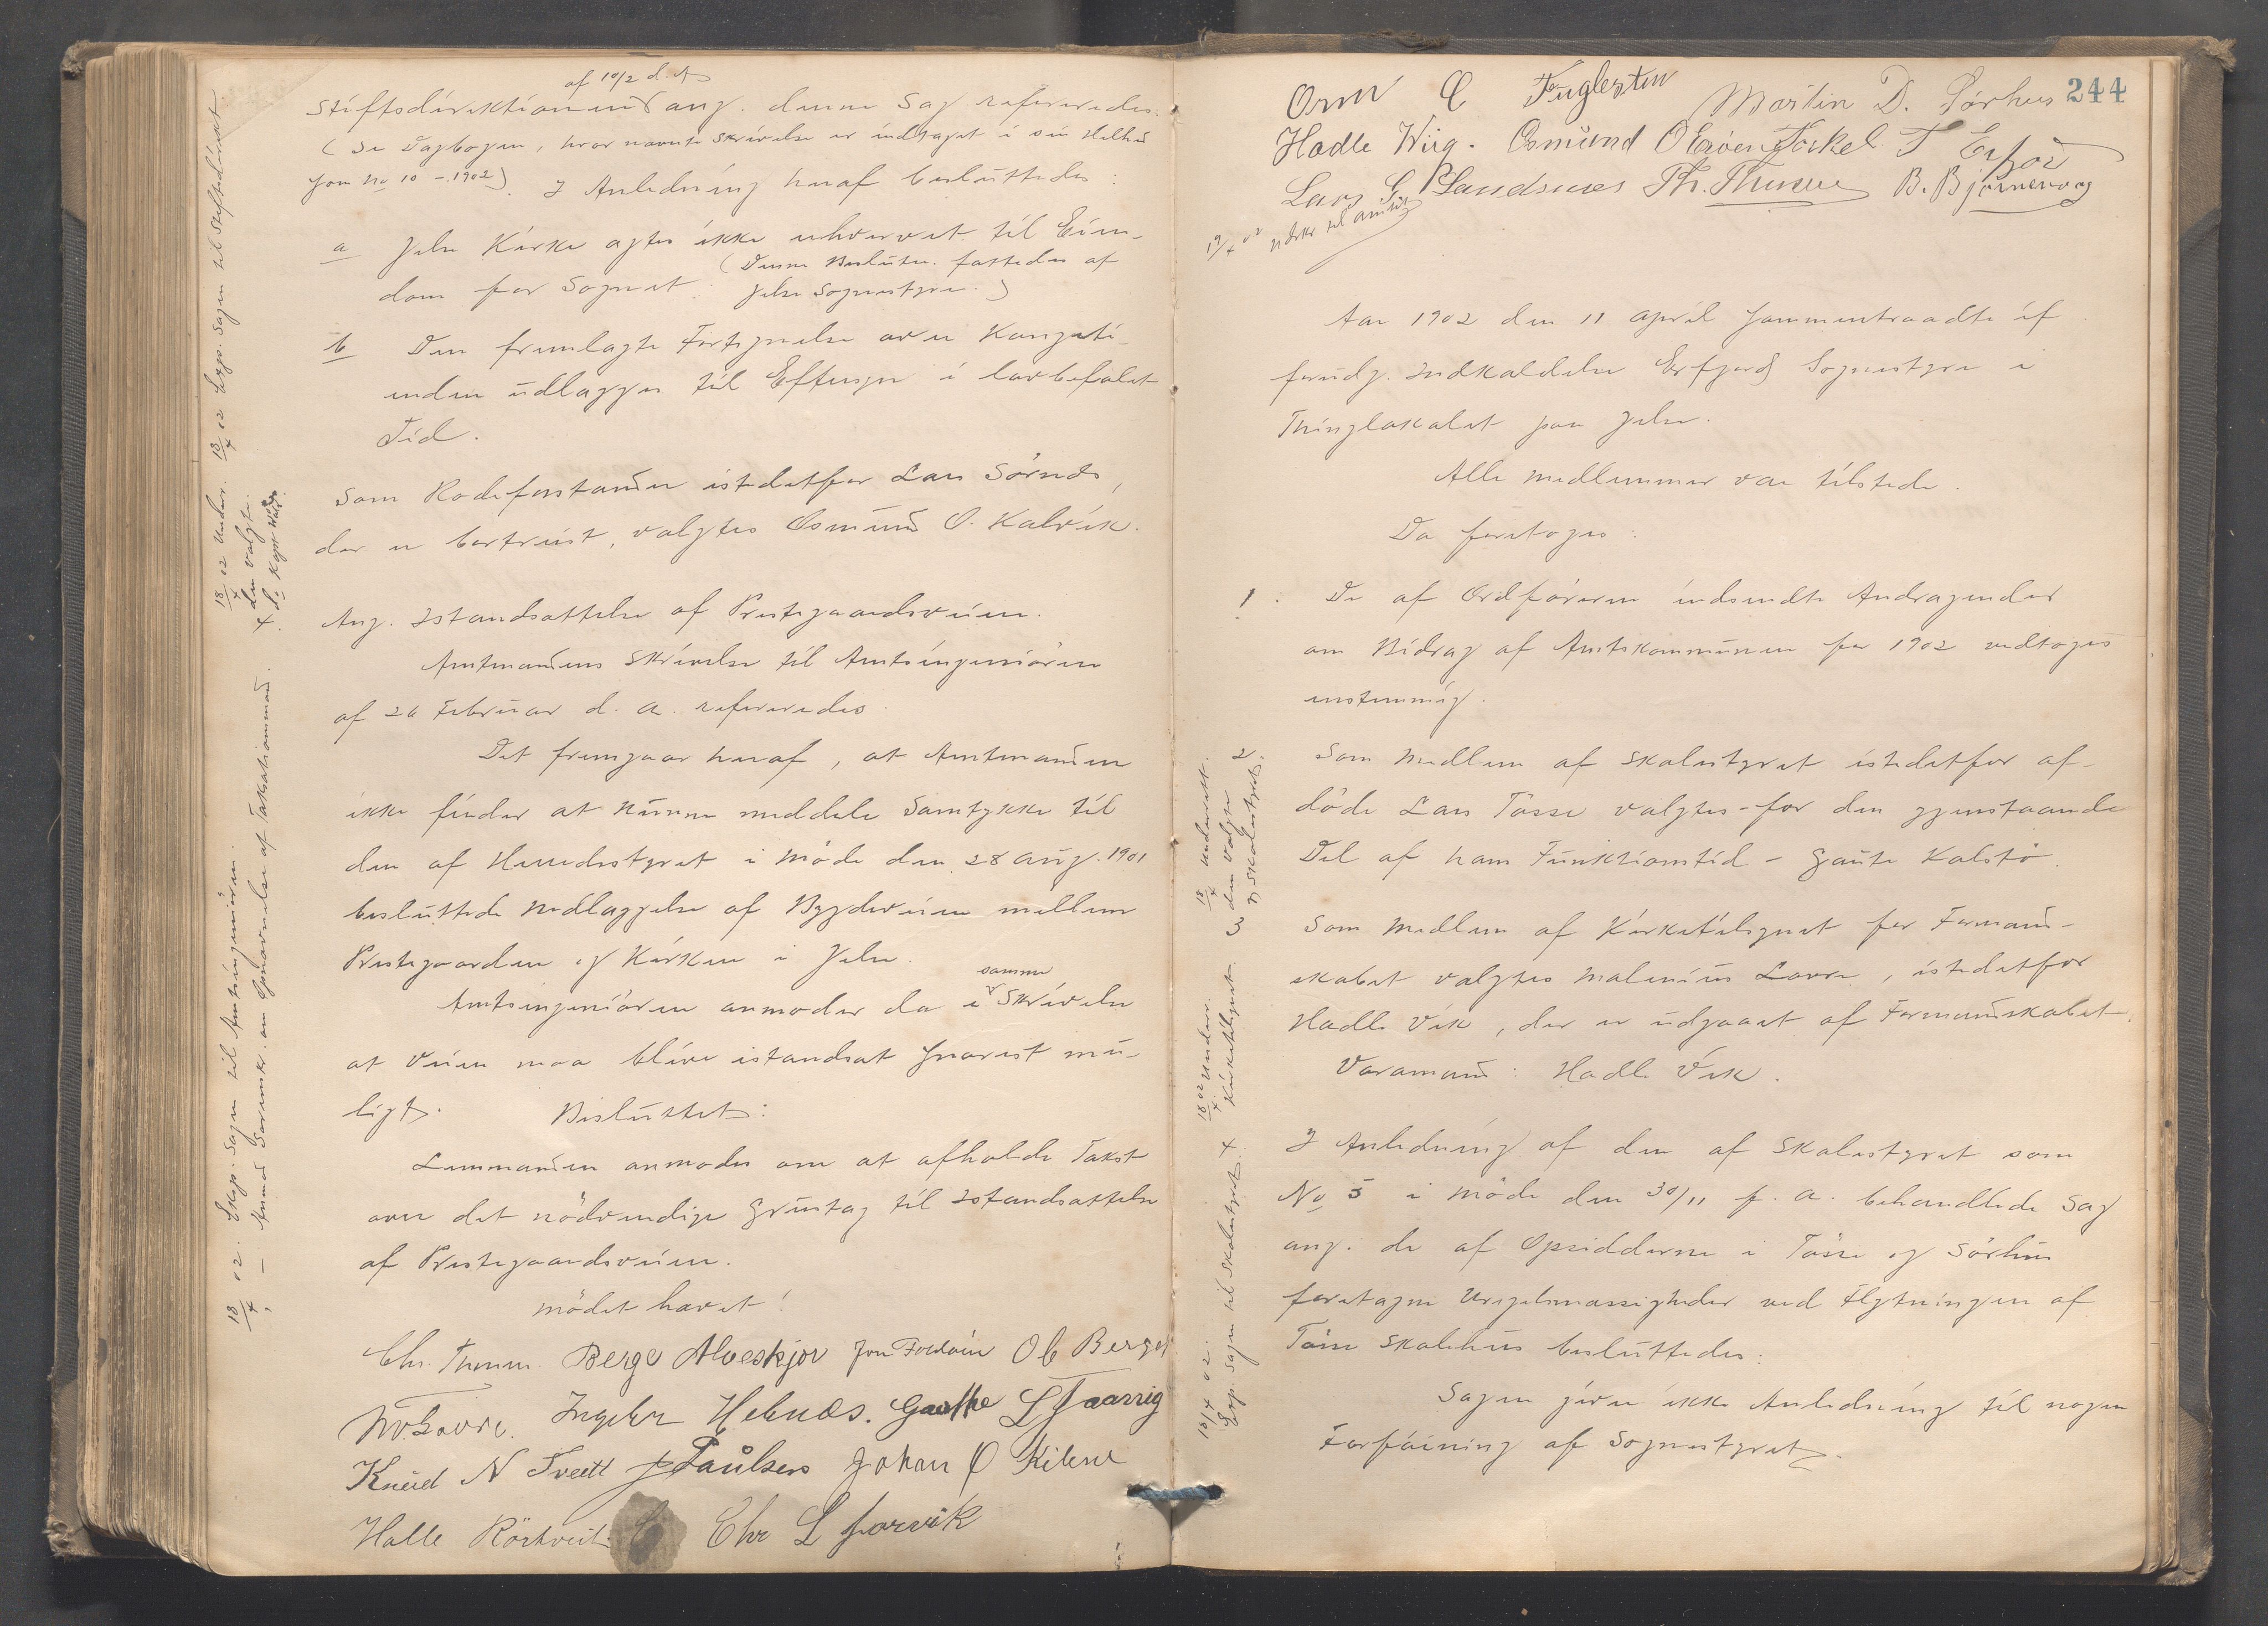 af 10/2 d. A
Stiftsdirektionen ang. denne Sag refereredes.
(Se Dagbogen, hvor nævnte Skrivelse er indtaget i sin Helhed
som No 10 – 1902). I Anledning heraf besluttedes:
a Jelse Kirke agtes ikke erhvervet til Eien-
dom for Sognet. (Denne Beslutn. fattedes af
Jelse Sognestyre.)
b Den fremlagte Fortegnelse over
enden udlægges til Eftersyn i lovbefalet
Tid.
Som Rodeforstander istedetfor Lars Sörnes,
der er bortreist, valgtes Osmund O. Kalvik.
Ang. Istandsættelse af Prestegaardsveien.
Amtmandens Skrivelse til Amtsingeniören
af 26 Februar d. a. refereredes.
Det fremgaar heraf, at Amtmanden
ikke finder at kunne meddele Samtykke til
den af Herredsstyret i Möde den 28 Aug. 1901
besluttede Nedlæggelse af Bygdeveien mellem
Prestegaarden og Kirken i Jelse.
Amtsingeniören anmoder da i samme Skrivelse
at Veien maa blive istandsat snarest mu-
ligt. Besluttet:
Lensmanden anmodes om at afholde Takst
over det nödvendige Grustag til Istandsættelse
af Prestegaardsveien.
Mödet hævet!
Chr. Thimm. Berge Alveskjor Jon Foldöen O b Berge
M. Lovre. Ingebr Hebnes. Gauthe L Taarrig
Knud N Tveitt J Paulsen Johan O Kilene
Halle Rörtveit. Chr L Jorvik
18/4 02. Exp. Sagen til Amtsingeniören.
" — Anmod. Sorenskr. om Opnævnelse af Taksationsmænd.
18/4 02 Underr. den valgte.
18/4 02 Exp. Sagen til Stiftsdirekt
244
Orm O Fuglesten Martin D. Sörhus
Hadle Wiig. Osmund O Eröen Torkel T Erfjor
Lars G Sandsnes Th. Thimm B. Bjørnevog
19/4 02 Udskr til Amtet
Aar 1902 den 11 April sammentraadte if
forudg. Indkaldelse Erfjord Sognestyre i
Thinglokalet paa Jelse.
Alle Medlemmer var tilstede.
Da foretoges:
1. De af Ordföreren indsendte Andragender
om Bidrag af Amtskommunen for 1902 vedtoges
enstemmig.
2 Som Medlem af Skolestyret istedetfor af-
döde Lars Tösse valgtes – for den gjenstaaende
Del af hans Funktionstid – Gaute Kalstö.
3 Som Medlem af Kirketilsynet for Formand-
skabet valgtes Malenius Lovre, istedetfor
Hadle Vik, der er udgaaet af Formandskabet.
Varamand: Hadle Vik.
4 I Anledning af den af Skolestyret som
No 5 i Möde den 30/11 f. A. behandlede Sag
ang. de af Opsidderne i Tösse og Sörhus
foretagne Uregelmæssigheder ved Flytningen af
Töse Skolehus besluttedes:
Sagen giver ikke Anledning til nogen
Forföining af Sognestyret.
18/4 underret. den valgte og Skolestyret.
18/4 02 Underr. Kirketilsynet
18/4 02. Exp. Sagen til Skolestyret